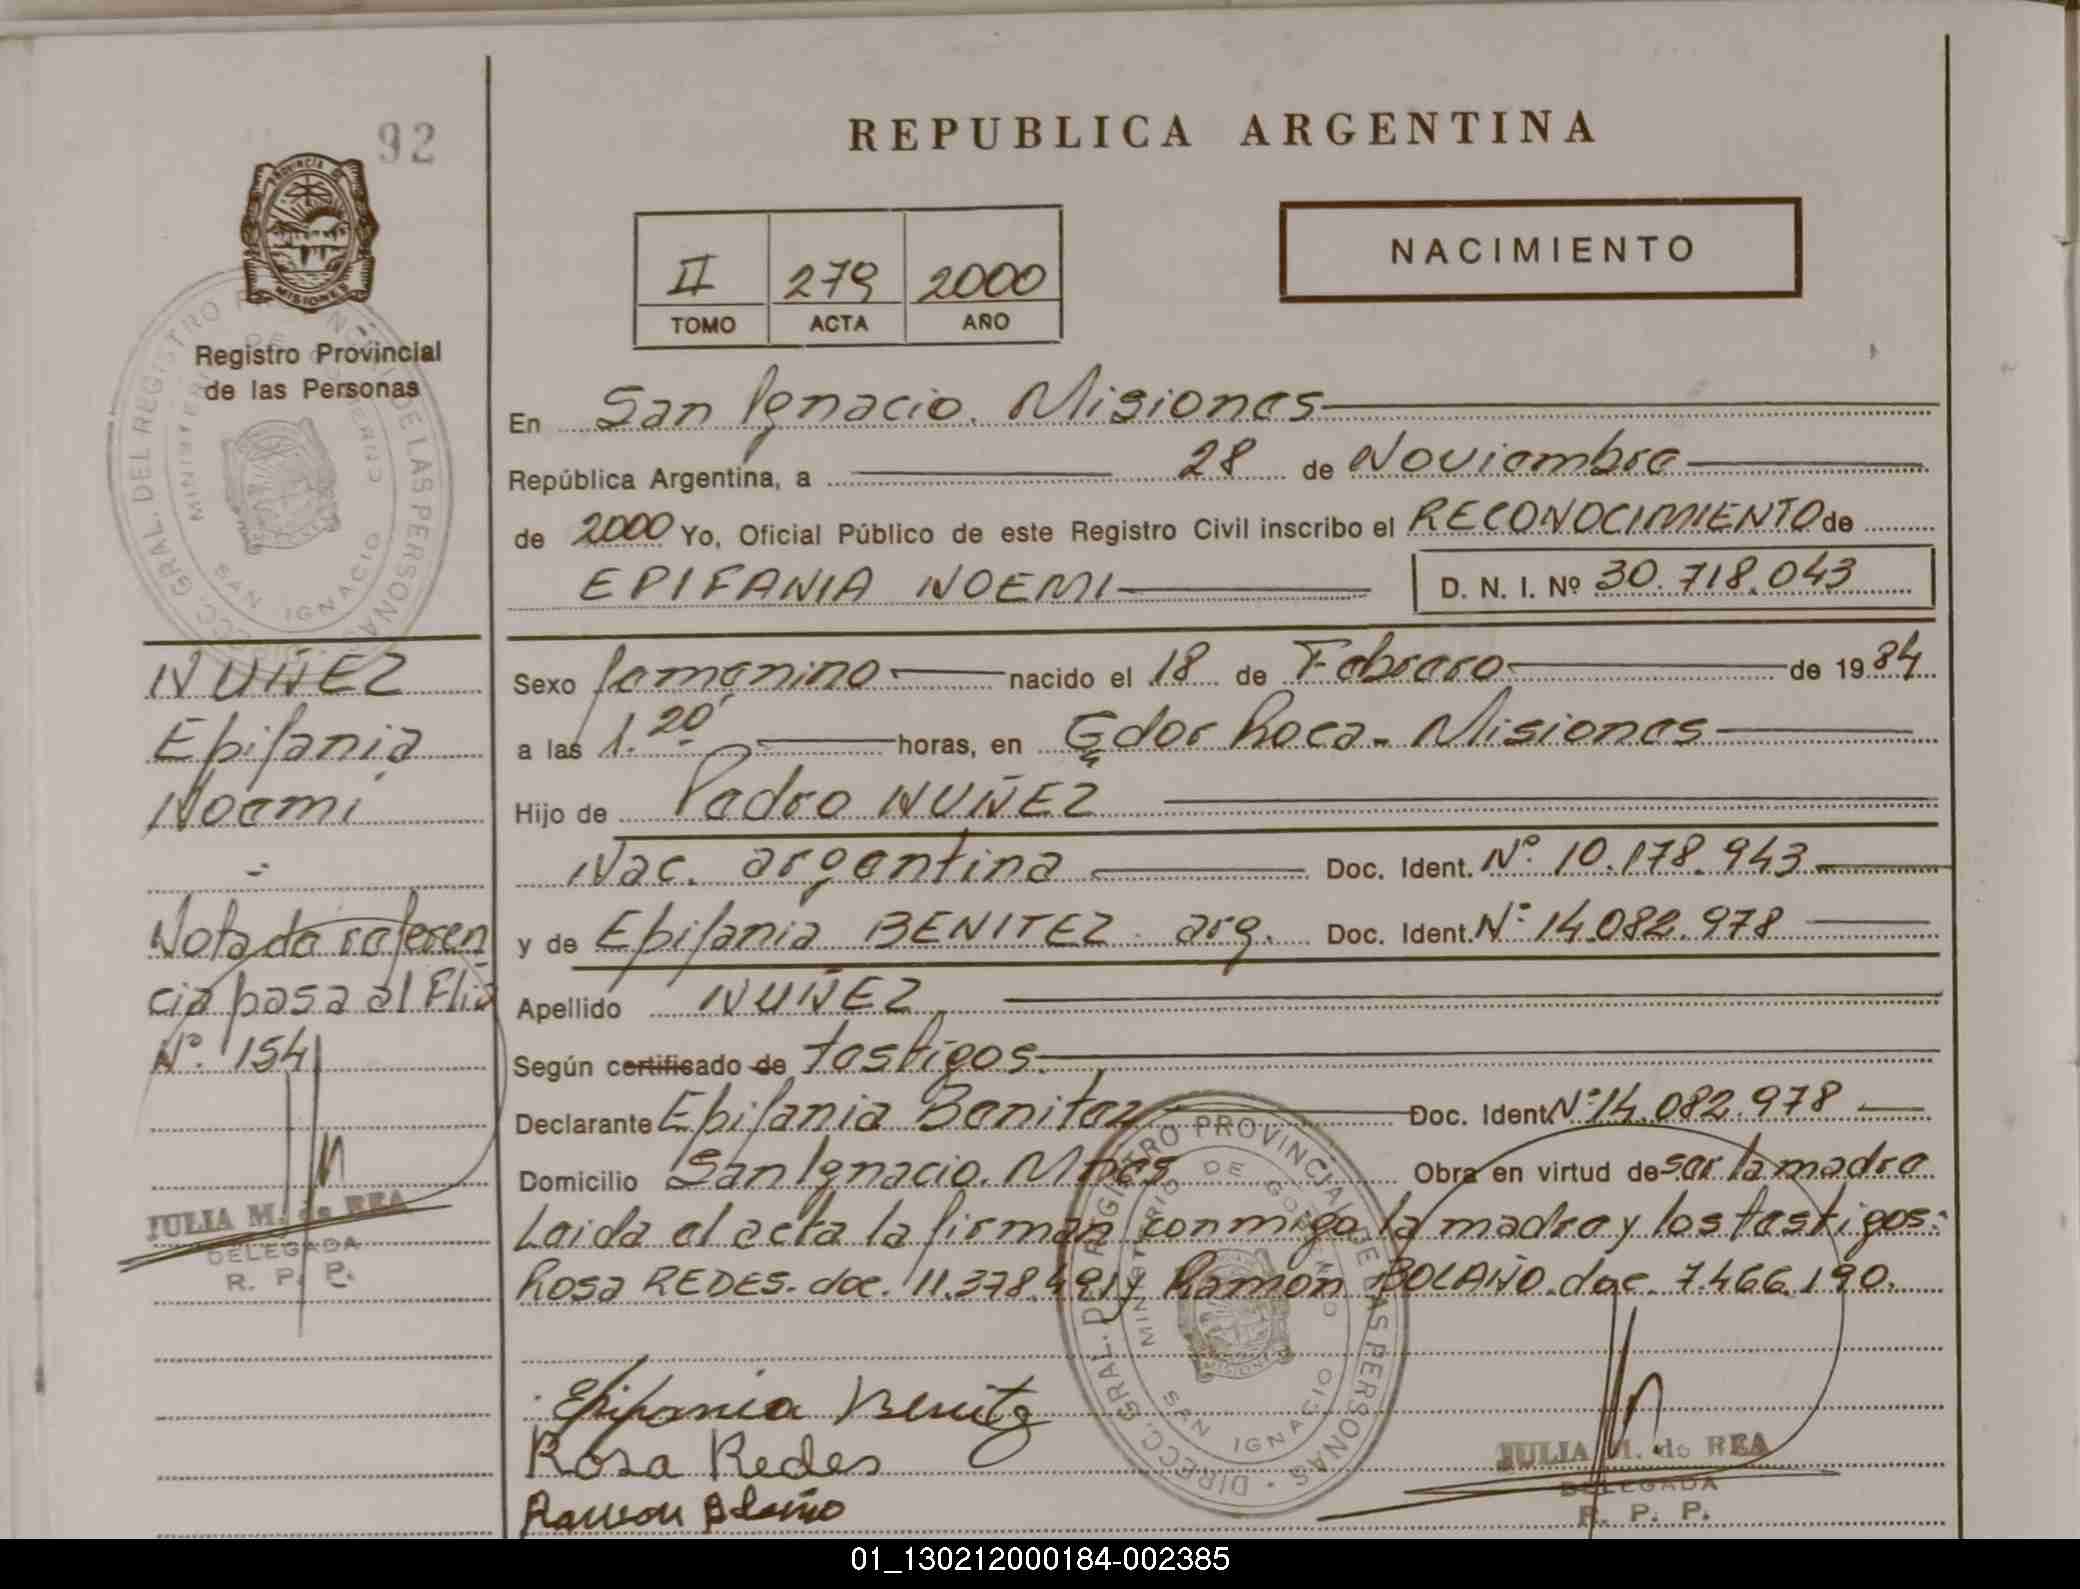 92
REPUBLICA ARGENTINA
PROVINCIA DE
MISIONES
II 279 2000
TOMO ACTA AÑO
NACIMIENTO
Registro Provincial
de las Personas
DIRECC. GRAL. DEL REGISTRO PROVINCIAL DE LAS PERSONAS
MINISTERIO DE GOBIERNO
SAN IGNACIO
En San Ignacio. Misiones
República Argentina, a 28 de Noviembre
de 2000 Yo, Oficial Público de este Registro Civil inscribo el RECONOCIMIENTO de
EPIFANIA NOEMI D. N. I. Nº 30.718.043
NUÑEZ
Epifania
Noemi
-
Nota de referen
cia pasa al Flio
Nº. 154
JULIA M. de REA
DELEGADA
R. P. P.
Sexo femenino nacido el 18 de Febrero de 1984
a las 1.20 horas, en Gdor Roca - Misiones
Hijo de Pedro NUÑEZ
Nac. argentina Doc. Ident. Nº. 10.178.943
y de Epifania BENITEZ arg. Doc. Ident. Nº 14.082.978
Apellido NUÑEZ
Según certificado de testigos.
Declarante Epifania Benitez Doc. Ident Nº 14.082.978
Domicilio San Ignacio. Mnes Obra en virtud de ser la madre
Leida el acta la firman conmigo la madre y los testigos:
Rosa REDES. doc. 11.378.491 y Ramon BOLAÑO. doc. 7.466.190.
Epifania Benitez
Rosa Redes
Ramon Bolaño
DIRECC. GRAL. DEL REGISTRO PROVINCIAL DE LAS PERSONAS
MINISTERIO DE GOBIERNO
SAN IGNACIO
MISIONES
JULIA M. de REA
DELEGADA
R. P. P.
01_130212000184-002385